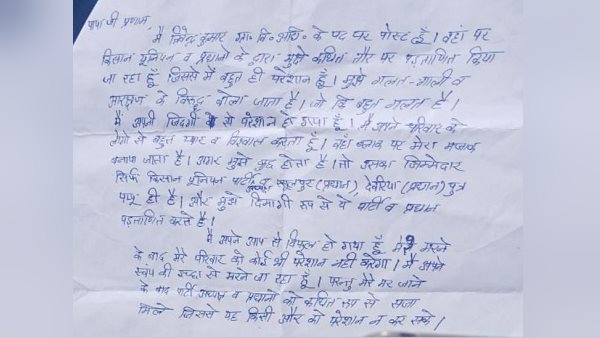 पापा जी प्रणाम,
मैं जितेन्द्र कुमार ग्रा॰ वि॰ अधि॰ के पद पर पोस्ट हूँ। वहां पर
किसान यूनियन व प्रधानो के द्वारा मुझे कथित तौर पर पड़ताणित किया
जा रहा हूँ जिससे में बहुत ही परेशान हूँ। मुझे गलत-गाली व
आरक्षण के विरूद्ध बोला जाता है। जो कि बहुत गलत है।
मैं अपनी जिंदगी से परेशान हो गया हूँ। मैं अपने परिवार के
लोगो से बहुत प्यार व विश्वास करता हूँ। वहां ब्लाक पर मेरा मजाक
बनाया जाता है। अगर मुझे कुछ होता है। तो उसका जिम्मेदार
सिर्फ किसान यूनियन पार्टी व रसूलपुर (प्रधान), देवीरिया (प्रधान) पुत्र
पप्पू ही है। और मुझे दिमागी रूप से ये पार्टी व प्रधान
पड़ताणित करते है।
मैं अपने आप से विमुख हो गया हूँ मेरे मरने
के बाद मेरे परिवार को कोई भी परेशान नहीं करेगा। मैं अपने
स्वंय की इच्छा से मरने जा रहा हूँ। परन्तु मेरे मर जाने
के बाद पार्टी अध्यक्ष व प्रधानो को कथित रूप से सजा
मिले जिससे यह किसी और को परेशान न कर सके।